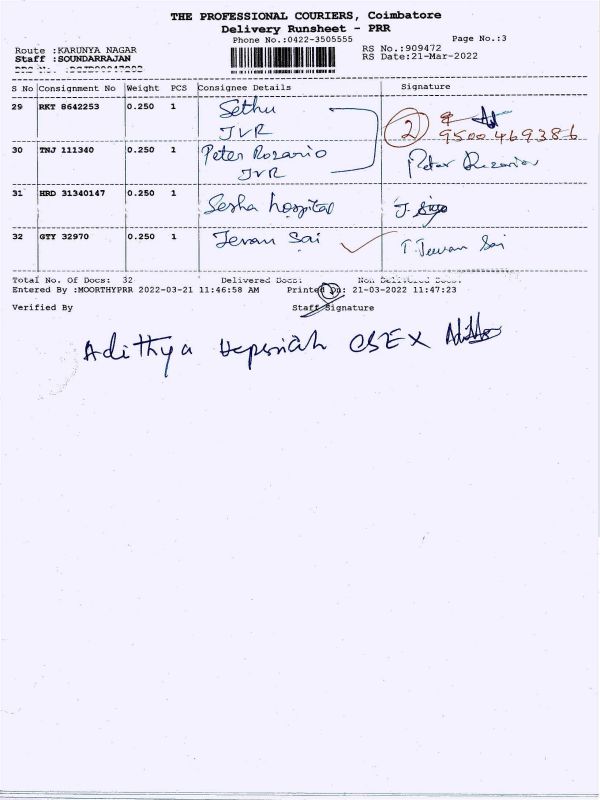 THE PROFESSIONAL COURIERS, Coimbatore
Delivery Runsheet - PRR
Phone No.:0422-3505555 Page No.:3
Route :KARUNYA NAGAR RS No.:909472
Staff :SOUNDARRAJAN RS Date:21-Mar-2022
S No Consignment No Weight PCS Consignee Details Signature
29 RKT 8642253 0.250 1 Sethu
JVR 2 9500469386
30 TNJ 111340 0.250 1 Peter Rozario
JVR
31 HRD 31340147 0.250 1 Sesha hospital J.
32 GTY 32970 0.250 1 Jevan Sai T. Jeevan Sai
Total No. Of Docs: 32 Delivered Docs: Non Delivered Docs:
Entered By :MOORTHYPRR 2022-03-21 11:46:58 AM Printed On: 21-03-2022 11:47:23
Verified By Staff Signature
Adithya CSEX